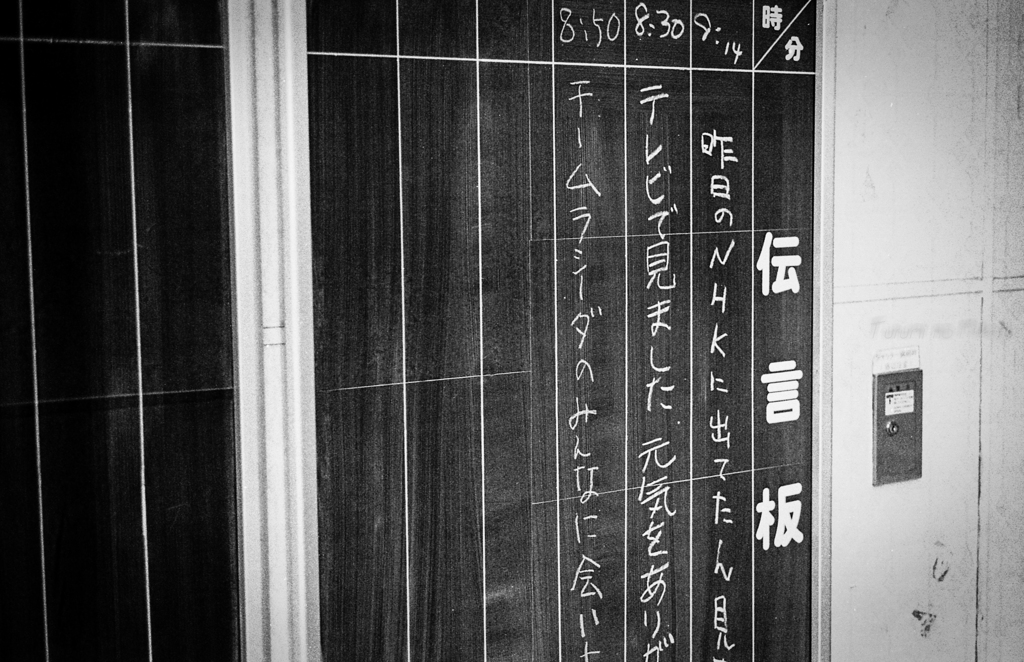 時分
伝言板
8:14
昨日のNHKに出てたん見
8:30
テレビで見ました.元気をありが
8:50
チームラシーダのみんなに会い